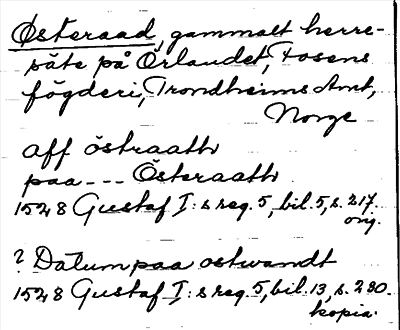 Østeraad, gammalt herre-
säte på Örlandet, Fosens
fögderi, Trondheims Amt,
Norge
aff östraath
paa --- Österaath
1528 Gustaf I:s reg. 5, bil. 5, s. 217.
orig.
? Datum paa ostwandt
1528 Gustaf I:s reg. 5, bil. 13, s. 230.
kopia.